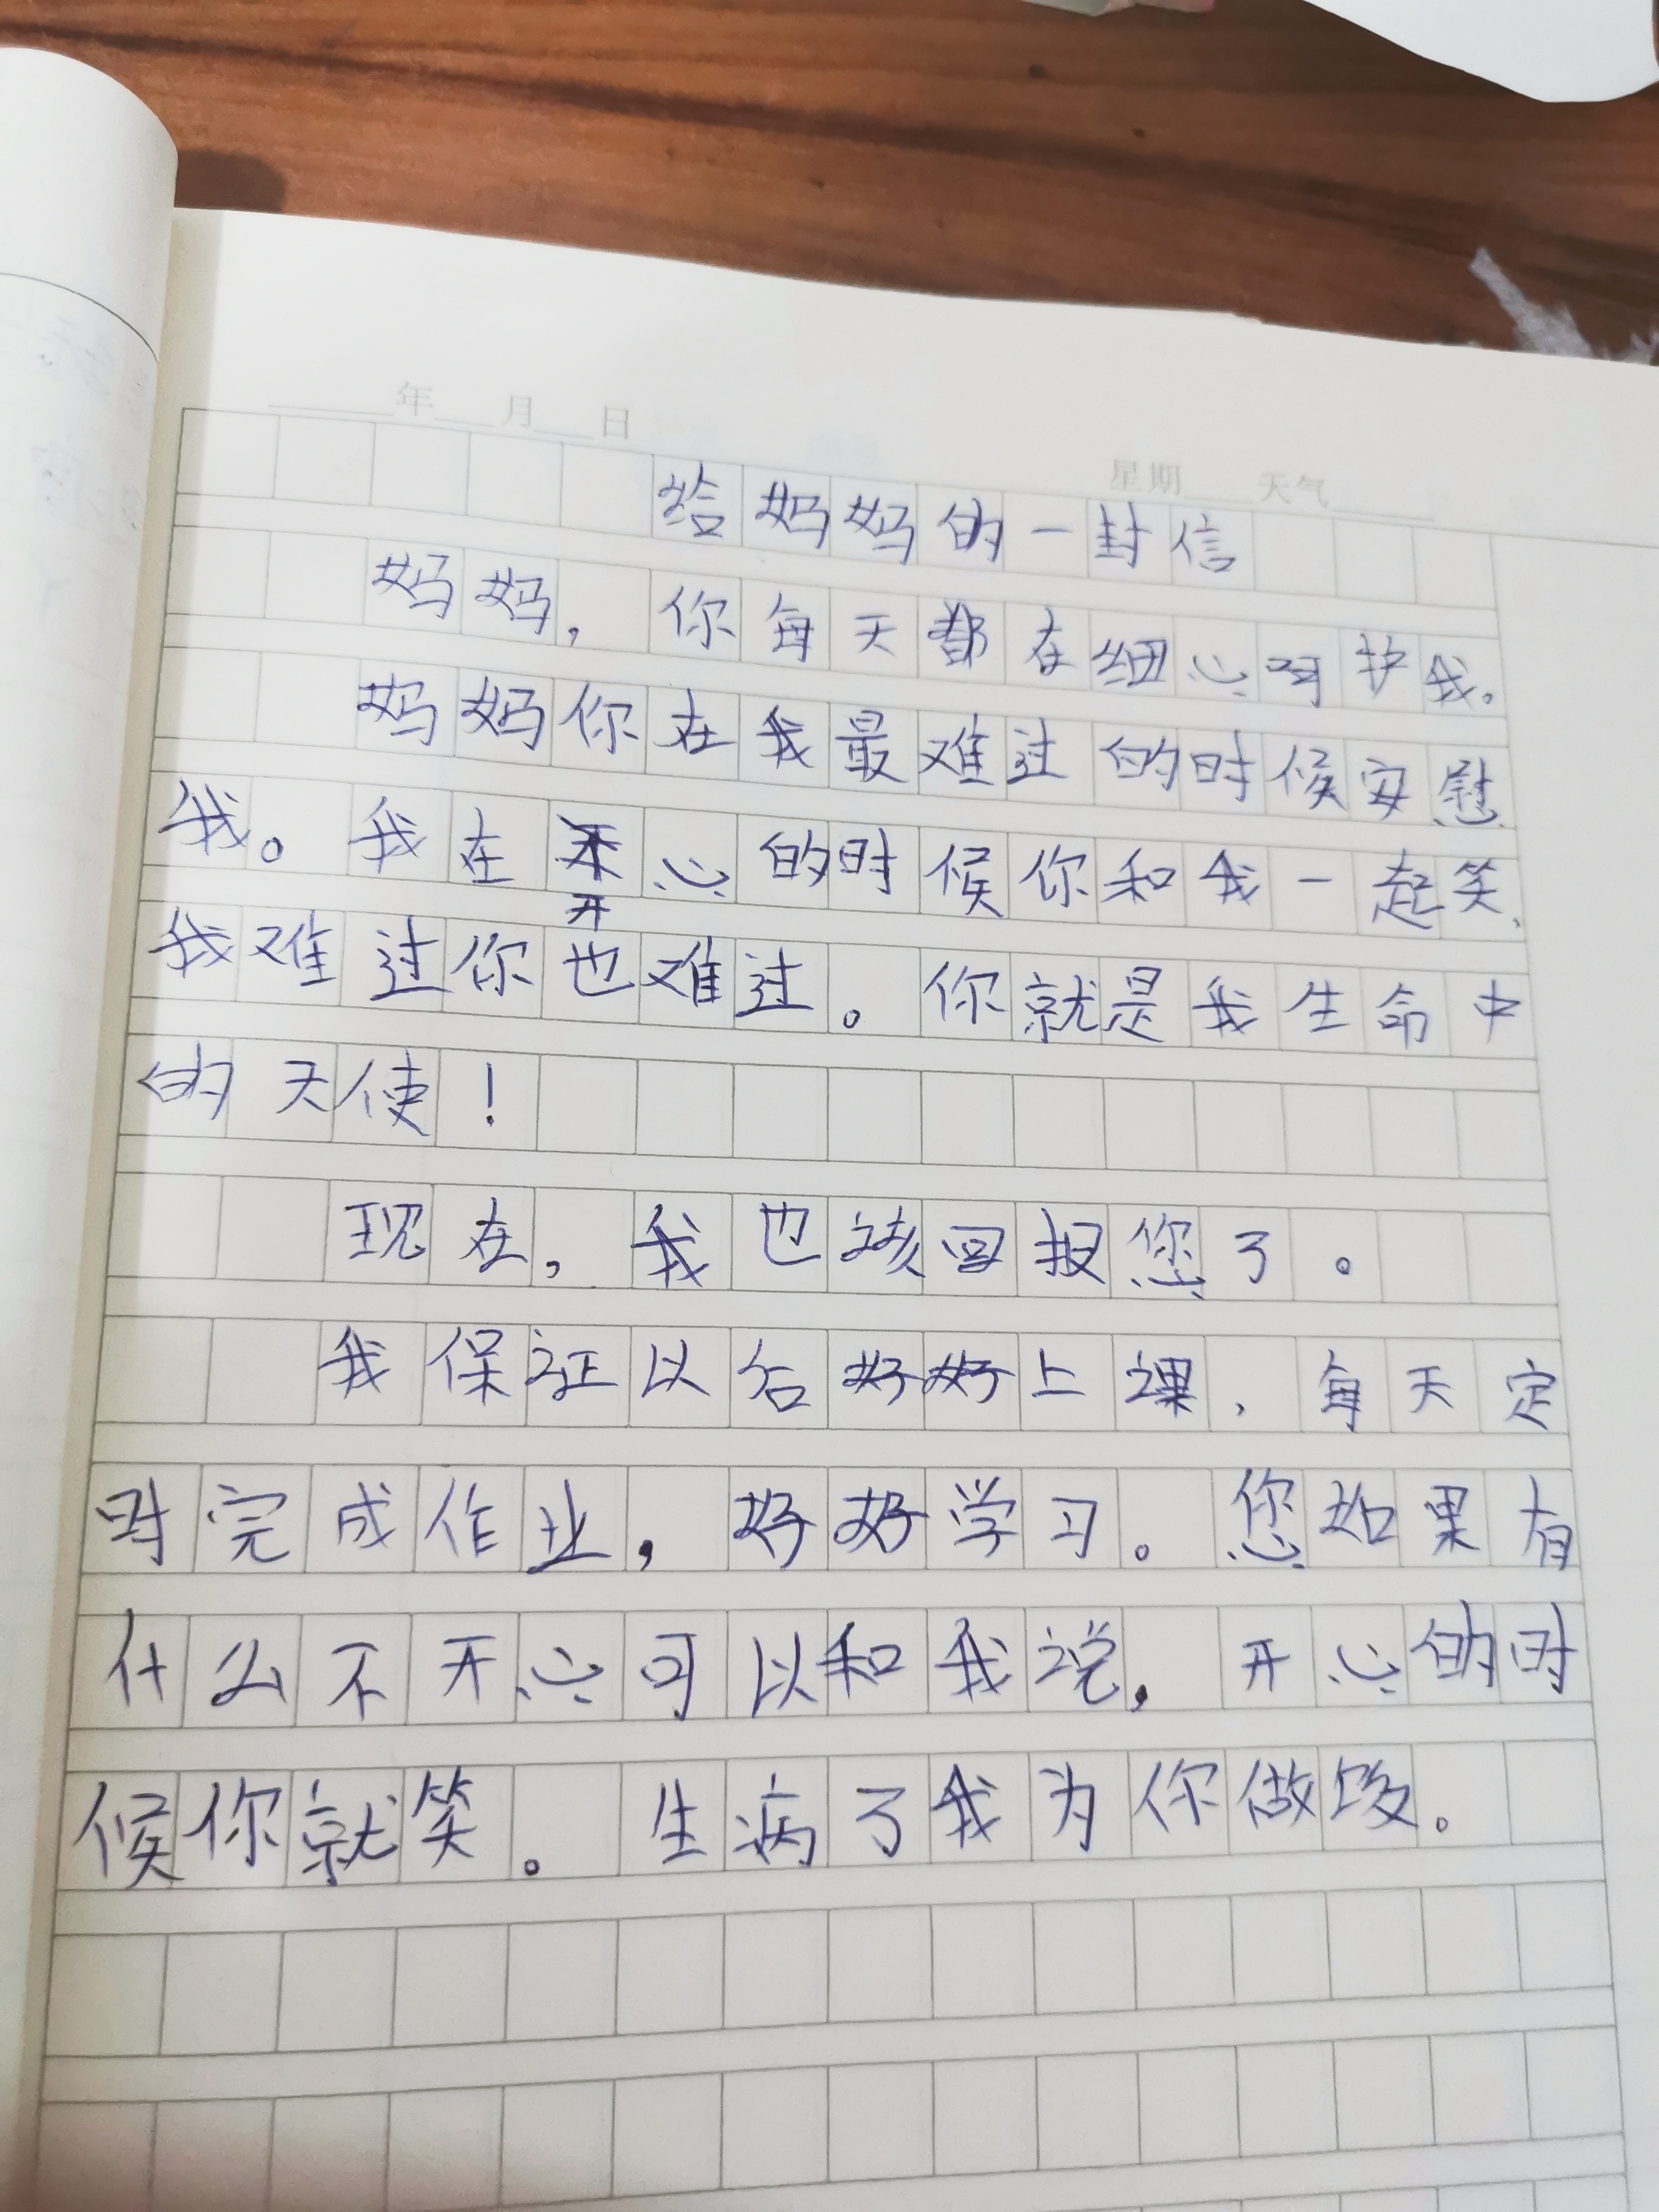 年 月 日
星期 天气
给妈妈的一封信
妈妈，你每天都在细心呵护我。
妈妈你在我最难过的时候安慰
我。我在开心的时候你和我一起笑、
我难过你也难过。你就是我生命中
的天使！
现在，我也该回报您了。
我保证以后好好上课，每天定
时完成作业，好好学习。您如果有
什么不开心可以和我说，开心的时
候你就笑。生病了我为你做饭。